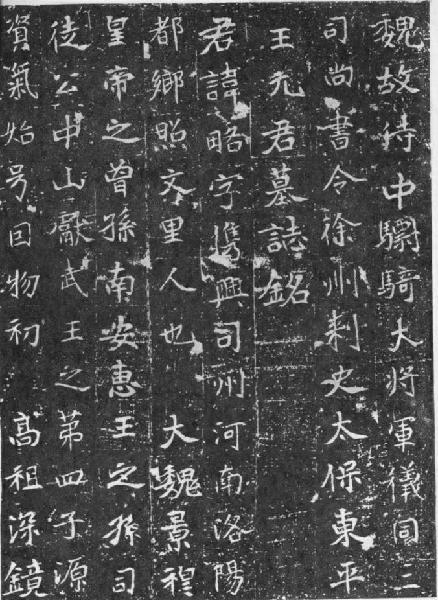 魏故侍中驃騎大將軍儀同三
司尚書令徐州刺史太保東平
王元君墓誌銘
君諱略字儁興司州河南洛陽
都鄉照文里人也　大魏景穆
皇帝之曾孫南安惠王之孫司
徒公中山獻武王之第四子源
資氣始号因物初　高祖深鏡